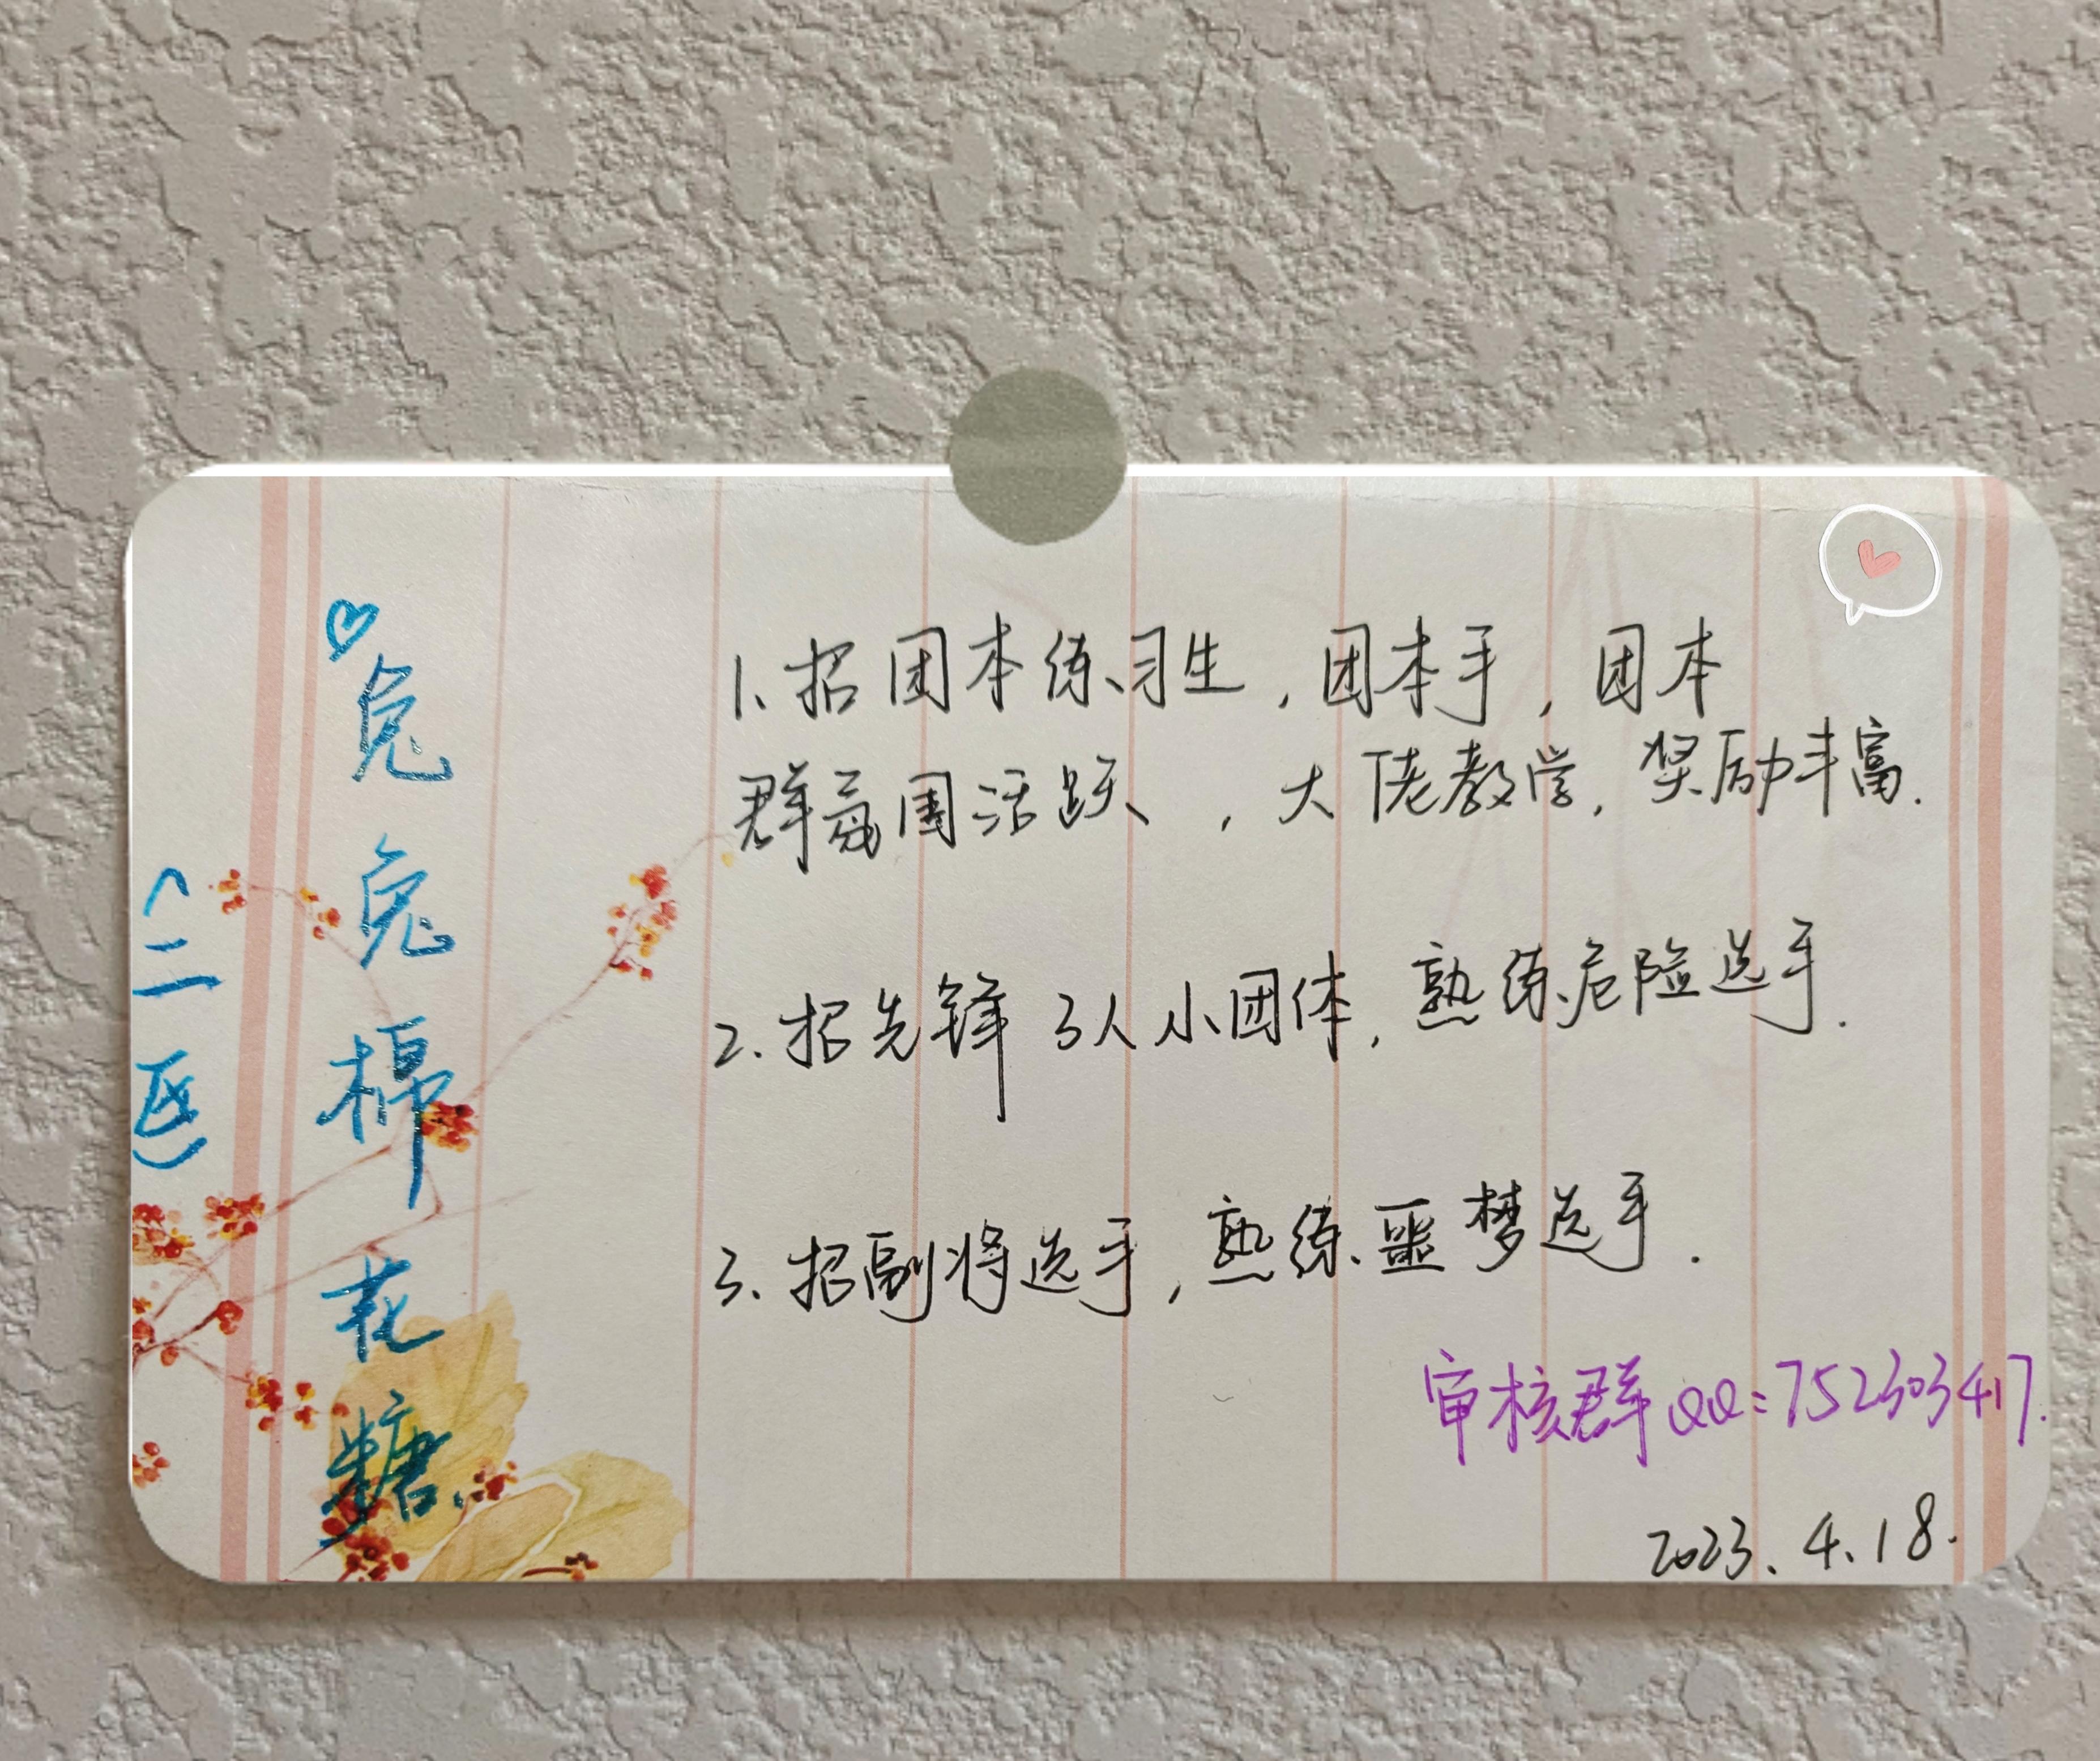 ♡兔兔棉花糖
(二区)
1.招团本练习生,团本手,团本
群氛围活跃,大佬教学,奖励丰富.
2.招先锋3人小团体,熟练危险选手.
3.招副将选手,熟练噩梦选手.
审核群QQ:752303417.
2023.4.18.